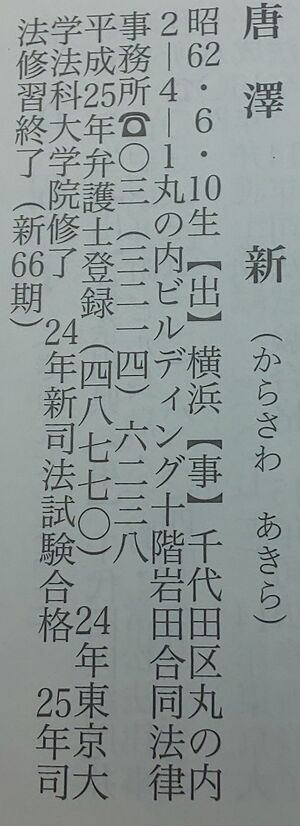 唐澤　新（からさわ　あきら）
昭62・6・10生【出】横浜【事】千代田区丸の内
2―4―1丸の内ビルディング十階岩田合同法律
事務所☎〇三（三二一四）六二三八
平成25年弁護士登録（四八七七〇）　24年東京大
学法科大学院修了　24年新司法試験合格　25年司
法修習終了（新66期）